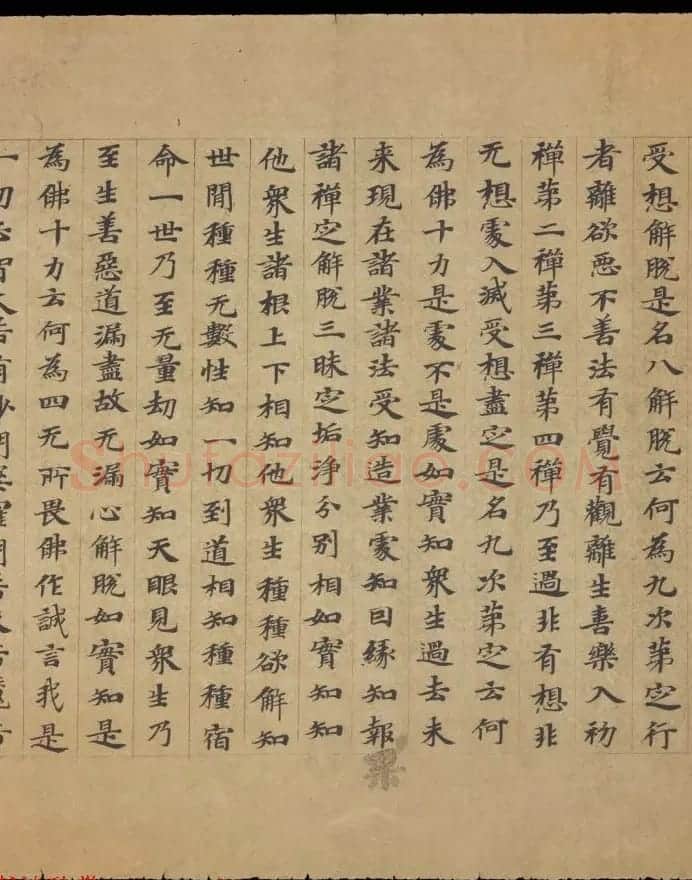 受想解脫是名八解脫云何為九次第定行
者離欲惡不善法有覺有觀離生喜樂入初
禪第二禪第三禪第四禪乃至過非有想非
无想處入滅受想盡定是名九次第定云何
為佛十力是處不是處如實知衆生過去未
来現在諸業諸法受知造業處知因緣知報
果
諸禪定解脫三昧定垢淨分別相如實知知
他衆生諸根上下相知他衆生種種欲解知
世間種種无數性知一切到道相知種種宿
命一世乃至无量劫如實知天眼見衆生乃
至生善惡道漏盡故无漏心解脫如實知是
為佛十力云何為四无所畏佛作誠言我是
一切正智
Shufaziliao.COM